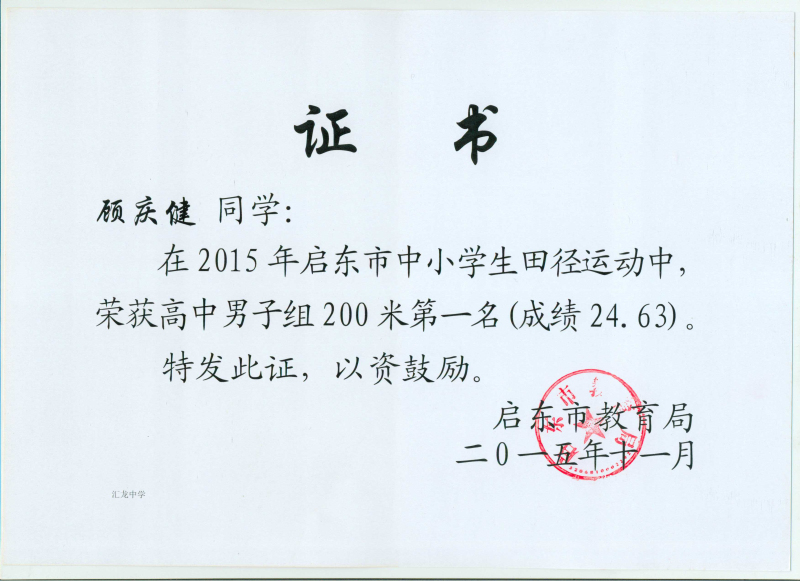 证 书
顾庆健 同学：
在2015年启东市中小学生田径运动中，
荣获高中男子组200米第一名(成绩24.63)。
特发此证，以资鼓励。
启东市教育局
二0一五年十一月
汇龙中学